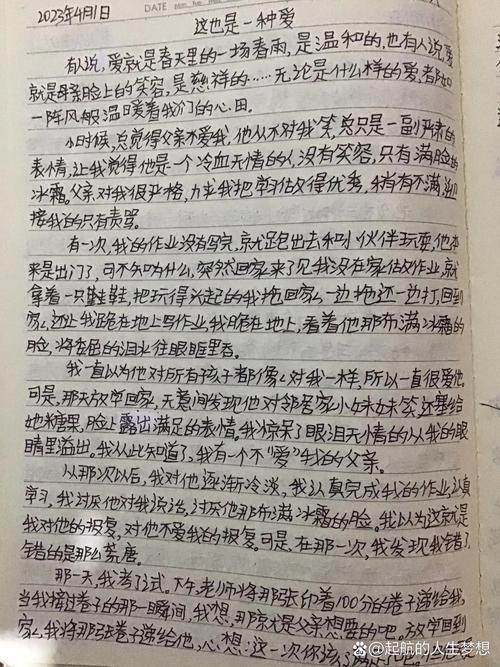 2023年4月1日
DATE
这也是一种爱
有人说，爱就是春天里的一场春雨，是温和的，也有人说，爱
就是母亲脸上的笑容，是慈祥的……无论是什么样的爱，都如
一阵风般温暖着我们的心田。
小时候，总觉得父亲不爱我，他从不对我笑，总只是一副严肃的
表情，让我觉得他是一个冷血无情的人，没有笑容，只有满脸的
冰霜。父亲对我很严格，力求我把学习做得优秀，稍有不满，迎
接我的只有责骂。
有一次，我的作业没有写完，就跑出去和小伙伴玩耍，他本
来是出门了，可不知为什么，突然回家来了见我没在家做作业，就
拿着一只鞋，把玩得兴起的我拖回家，一边拖还一边打，回到
家，还让我跪在地上写作业，我跪在地上，看着他那布满冰霜的
脸，将委屈的泪水往眼眶里吞。
我一直以为他对所有孩子都像对我一样，所以一直很爱他。
可是，那天放学回家，无意间发现他对邻居家小妹妹笑，还塞给
她糖果，脸上露出满足的表情。我惊呆了眼泪无情的从我的眼
睛里溢出。我从此知道了，我有一个不“爱”我的父亲。
从那次以后，我对他逐渐冷淡，我认真完成我的作业，认真
学习，我讨厌他对我说话，讨厌他那布满冰霜的脸。我以为这就是
我对他的报复，对他不爱我的报复。可是，在那一次，我发现我错了，
错的是那么荒唐。
那一天，我考了试。下午，老师将那张印着100分的卷子递给我，
当我接过卷子的那一瞬间，我想，那就是父亲想要的吧。放学回到
家，我将那张卷子递给他，心想：这一次你该满
@起航的人生梦想